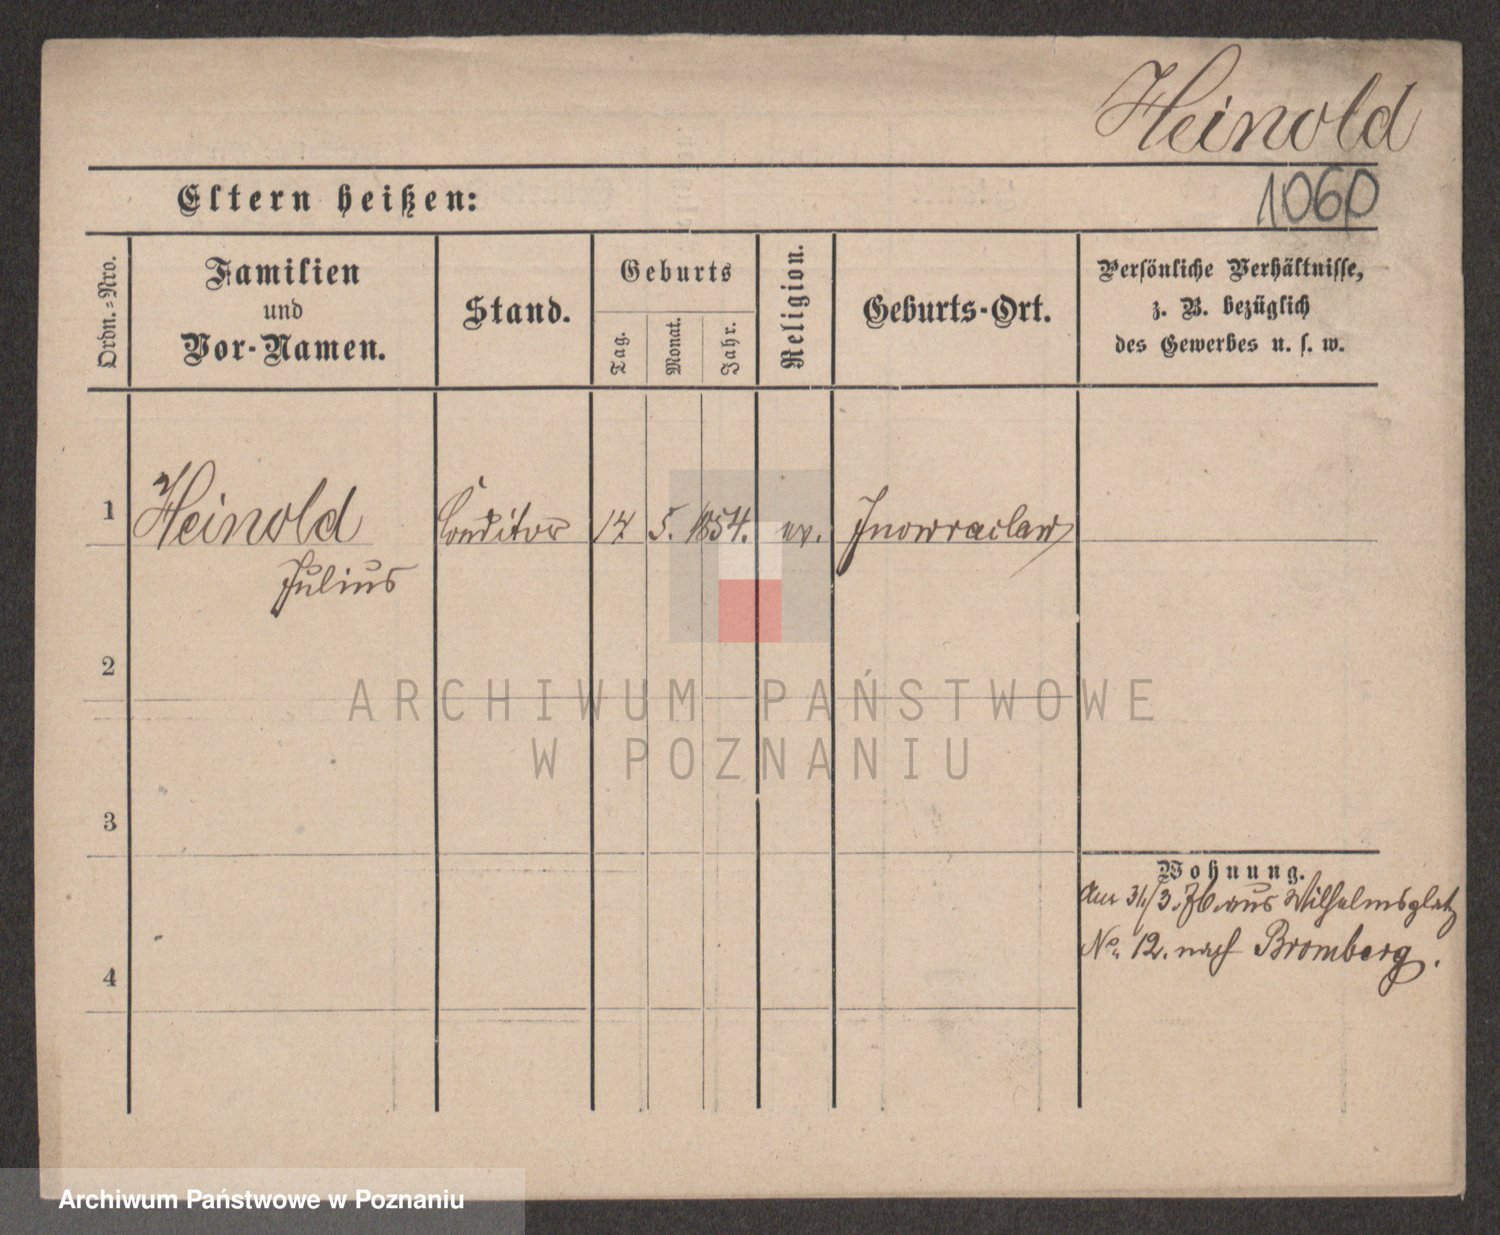 Heinold
1060
Eltern heißen:
Ordn.-Nro.
Familien
und
Vor-Namen.
Stand.
Geburts
Tag.
Monat.
Jahr.
Religion.
Geburts-Ort.
Persönliche Verhältnisse,
z. B. bezüglich
des Gewerbes u. s. w.
1
Heinold
Julius
Conditor
17
5.
1854.
ev.
Inowraclaw
2
ARCHIWUM PAŃSTWOWE
W POZNANIU
3
Wohnung.
Am 31/3. 76. aus Wilhelmsplatz
No. 12. nach Bromberg.
4
Archiwum Państwowe w Poznaniu